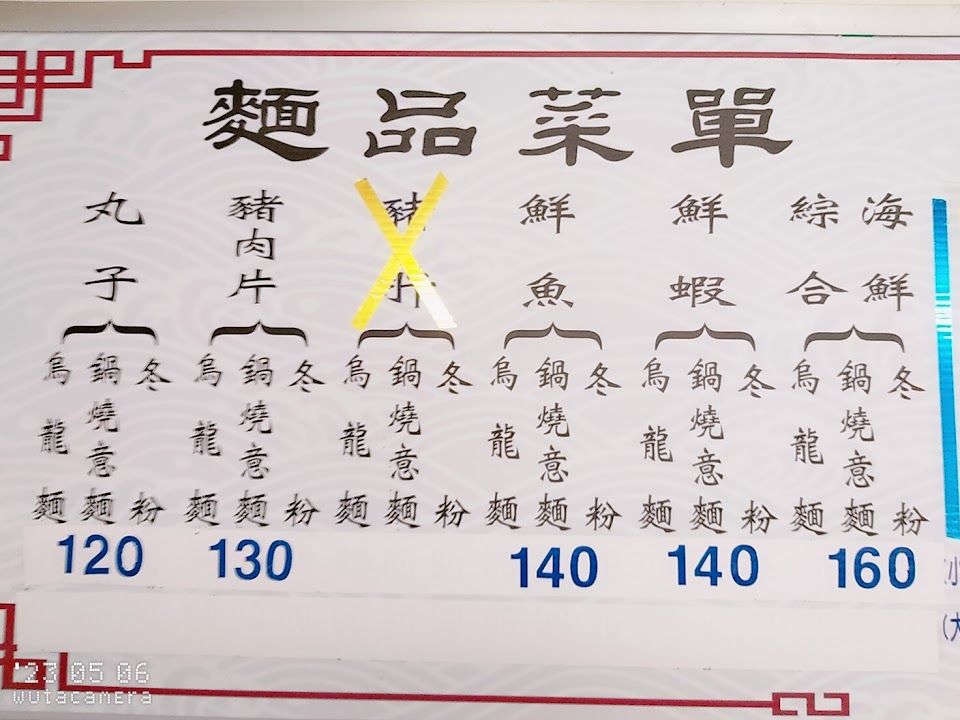 麵品菜單
丸子
豬肉片
鮮魚
鮮蝦
海鮮
綜合
烏龍麵 鍋燒意麵 冬粉
烏龍麵 鍋燒意麵 冬粉
烏龍麵 鍋燒意麵 冬粉
烏龍麵 鍋燒意麵 冬粉
烏龍麵 鍋燒意麵 冬粉
烏龍麵 鍋燒意麵 冬粉
120 130 140 140 160
小
(大
'23 05 06
wutacamera